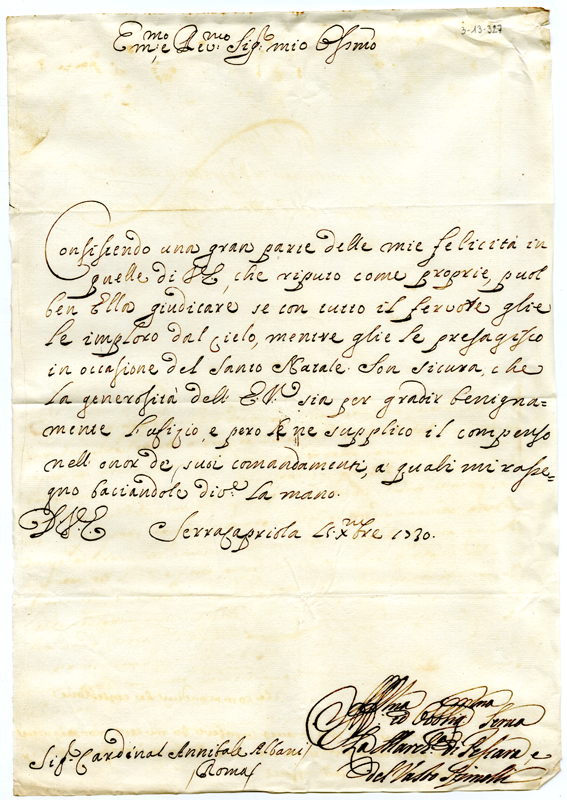 3-13-327
Em.mo e Rev.mo Sig.r mio Oss.mo
Consistendo una gran parte delle mie felicità in
quelle di V.E, che riputo come proprie, puol
ben Ella giudicare se con tutto il fervore glie
le imploro dal Cielo, mentre glie le presagisco
in occasione del Santo Natale. Son sicura, che
la generosità dell' E.V. sia per gradir benigna=
mente l'ufizio, e però le ne supplico il compenso
nell' onor de suoi comandamenti, a quali mi rasse=
gno baciandole div.e la mano.
D.V.E. Serracapriola Xbre 1730.
Serva
La March. di Pescara, e
del Vasto Spinelli
Sig.r Cardinal Annibale Albani
Roma